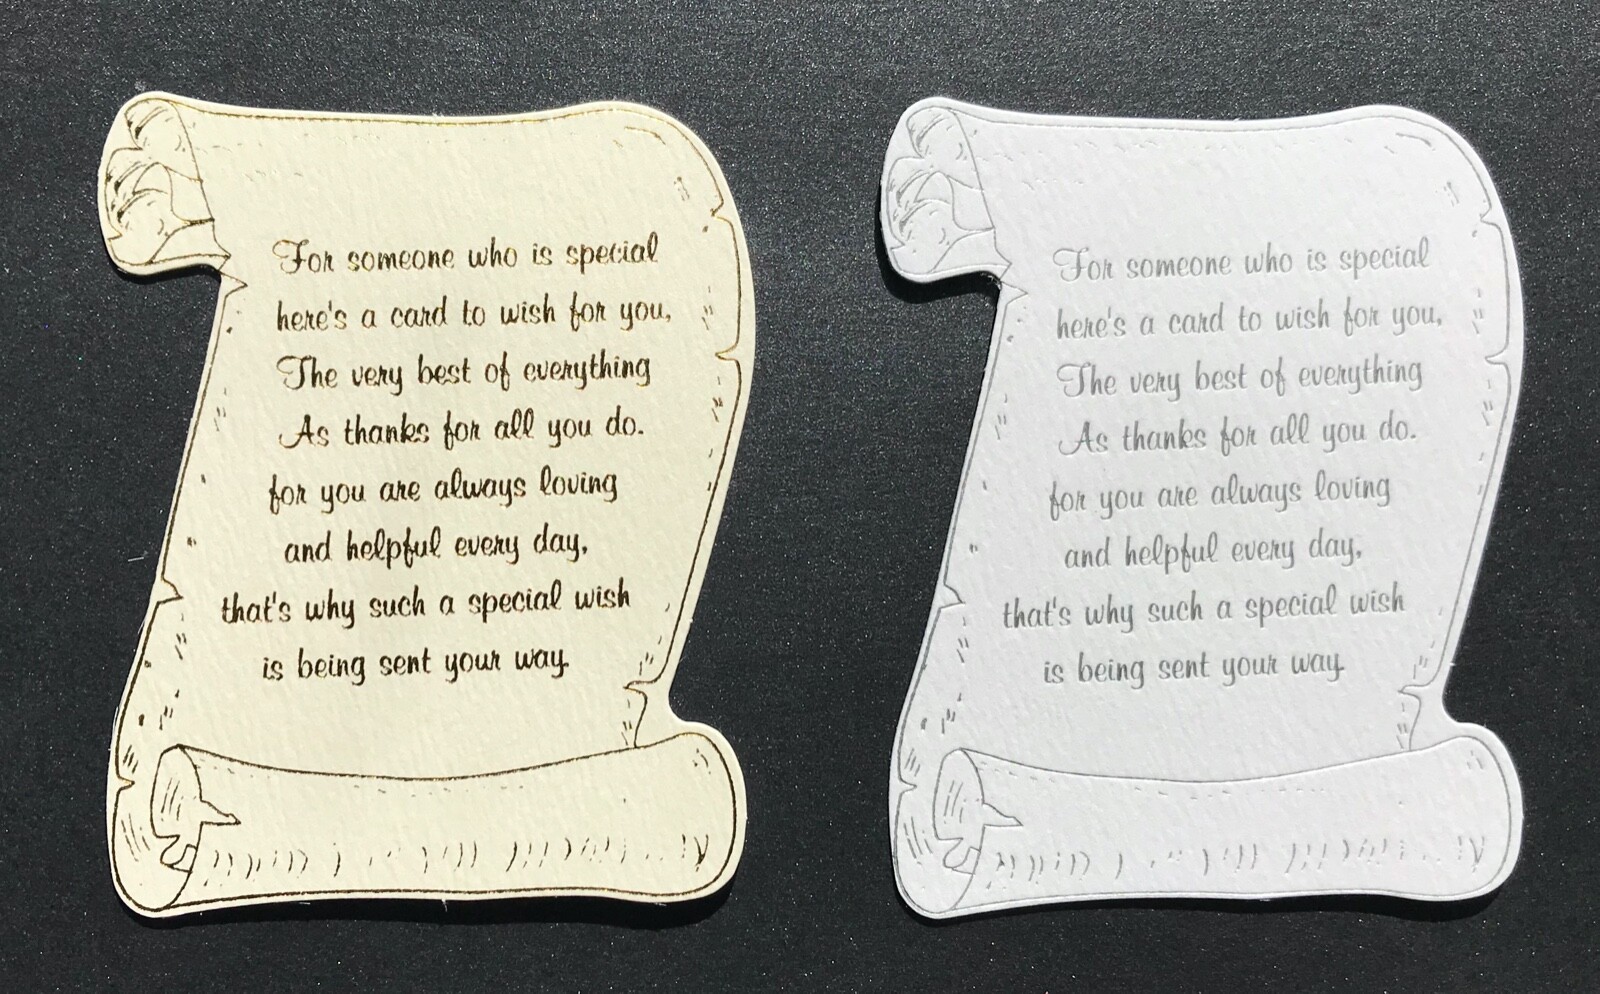 For someone who is special
here's a card to wish for you,
The very best of everything
As thanks for all you do.
for you are always loving
and helpful every day,
that's why such a special wish
is being sent your way.
For someone who is special
here's a card to wish for you,
The very best of everything
As thanks for all you do.
for you are always loving
and helpful every day,
that's why such a special wish
is being sent your way.